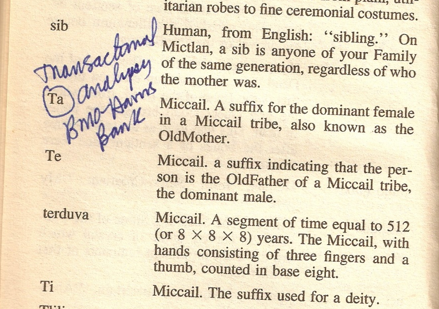 itarian robes to fine ceremonial costumes.
sib
Human, from English: “sibling.” On
Mictlan, a sib is anyone of your Family
of the same generation, regardless of who
the mother was.
Transactional
BMO-Harris
Bank
Ta
Miccail. A suffix for the dominant female
in a Miccail tribe, also known as the
OldMother.
Te
Miccail. a suffix indicating that the per-
son is the OldFather of a Miccail tribe,
the dominant male.
terduva
Miccail. A segment of time equal to 512
(or 8 × 8 × 8) years. The Miccail, with
hands consisting of three fingers and a
thumb, counted in base eight.
Ti
Miccail. The suffix used for a deity.